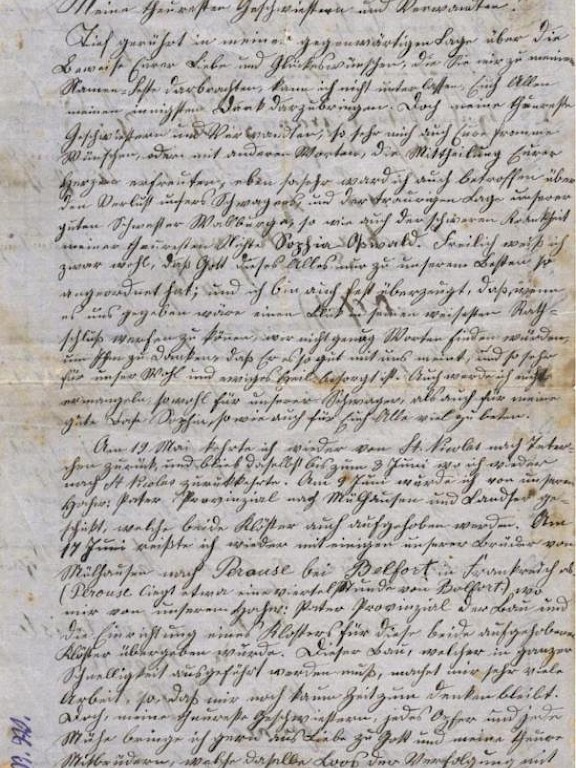 Meine Theuresten Geschwistern und Verwandten.
Tief gerührt in meiner gegenwärtigen Lage über die
Beweise Eurer Liebe und Glückswünschen, die Sie mir zu meinem
Namens-Feste darbrachten, kann ich nicht unterlassen, Euch Allen
meinen innigsten Dank darzubringen. Doch meine theureste
Geschwistern und Verwandten, so sehr mich auch Eure fromme
Wünschen, oder mit anderen Worten, die Mittheilung Eurer
Herzen erfreuten, eben so sehr ward ich auch betroffen über
den Verlust unsers Schwagers, und der traurigen Lage unserer
guten Schwester Walburga, so wie auch der schweren Krankheit
meiner theuresten Nichte Sophia Oswald. Freilich weiß ich
zwar wohl, daß Gott dieses Alles nur zu unserem Besten so
angeordnet hat; und ich bin auch fest überzeugt, daß, wenn
es uns gegeben wäre einen Blick in seinen weisesten Rath-
schluß werfen zu können, wir nicht genug Worten finden würden,
um Ihm zu danken, daß Er es so gut mit uns meint, und so sehr
für unser Wohl und ewiges Heil besorgt ist. Auch werde ich nicht
ermangeln, sowohl für unserer Schwager, als auch für meine
gute Base Sophia, so wie auch für Euch Alle viel zu beten.
Am 19 Mai kehrte ich wieder von St. Nicolas nach
zurück, und blieb daselbst bis zum 3 Juni wo ich wieder
nach St Nicolas zurückkehrte. Am 9 Juni wurde ich von unserem
Hochw: Pater Provinzial nach Mülhausen und Landser ge-
schickt, welche beide Klöster auch aufgehoben werden. Am
17 Juni reißte ich wieder mit einigen unserer Brüder von
Mülhausen nach Perouse bei Belfort in Frankreich ab
(Perouse liegt etwa eine viertelstunde von Belfort,) wo
mir von unserem Hochw: Pater Provinzial der Bau und
die Einrichtung eines Klosters für diese beide aufgehobenen
Klöster übergeben wurde. Dieser Bau, welcher in ganzer
Schnelligkeit ausgeführt werden muß, machet mir sehr viele
Arbeit, so, daß mir noch kaum Zeit zum denken bleibt.
Doch, meine theureste Geschwistern, jedes Opfer und jede
Mühe bringe ich gern aus Liebe zu Gott und meine theure
Mitbrüdern, welche dasselbe Loos der Verfolgung mit